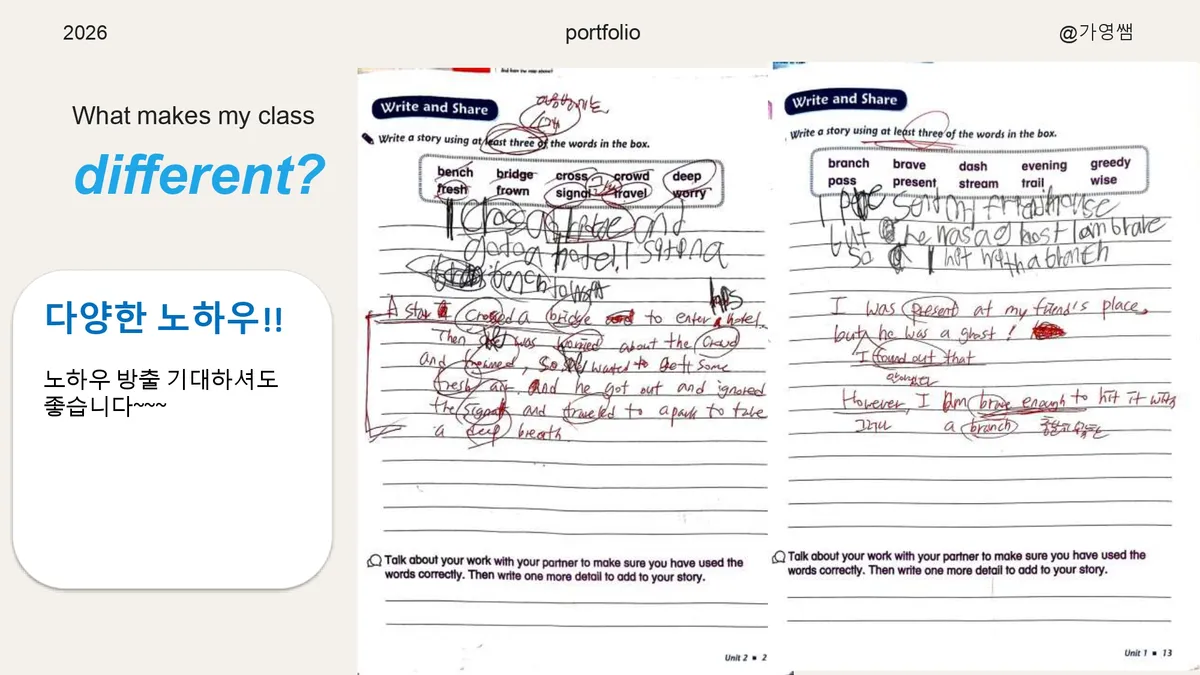 2026
portfolio
@가영쌤
What makes my class
different?
다양한 노하우!!
노하우 방출 기대하셔도
좋습니다~~~
And from the map above?
Write and Share
Write a story using at least three of the words in the box.
bench bridge cross crowd deep
fresh frown signal travel worry
I cross a bridge and
a hotel. I
bench
A star crossed a bridge to enter a hotel.
Then was worried about the crowd
and frowned, so wanted to get some
fresh air. And he got out and ignored
the signal and traveled to a park to take
a deep breath.
Talk about your work with your partner to make sure you have used the
words correctly. Then write one more detail to add to your story.
Unit 2 ▪ 2
Write and Share
Write a story using at least three of the words in the box.
branch brave dash evening greedy
pass present stream trail wise
I my house
but he was a ghost I am brave
so I hit with a branch
I was present at my friend's place,
but he was a ghost!
I found out that
However, I am brave enough to hit it with
그러나 a branch
Talk about your work with your partner to make sure you have used the
words correctly. Then write one more detail to add to your story.
Unit 1 ▪ 13